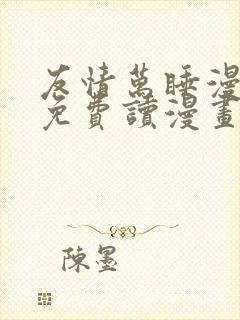 友情萬睡漫
免費讀漫畫
陳墨